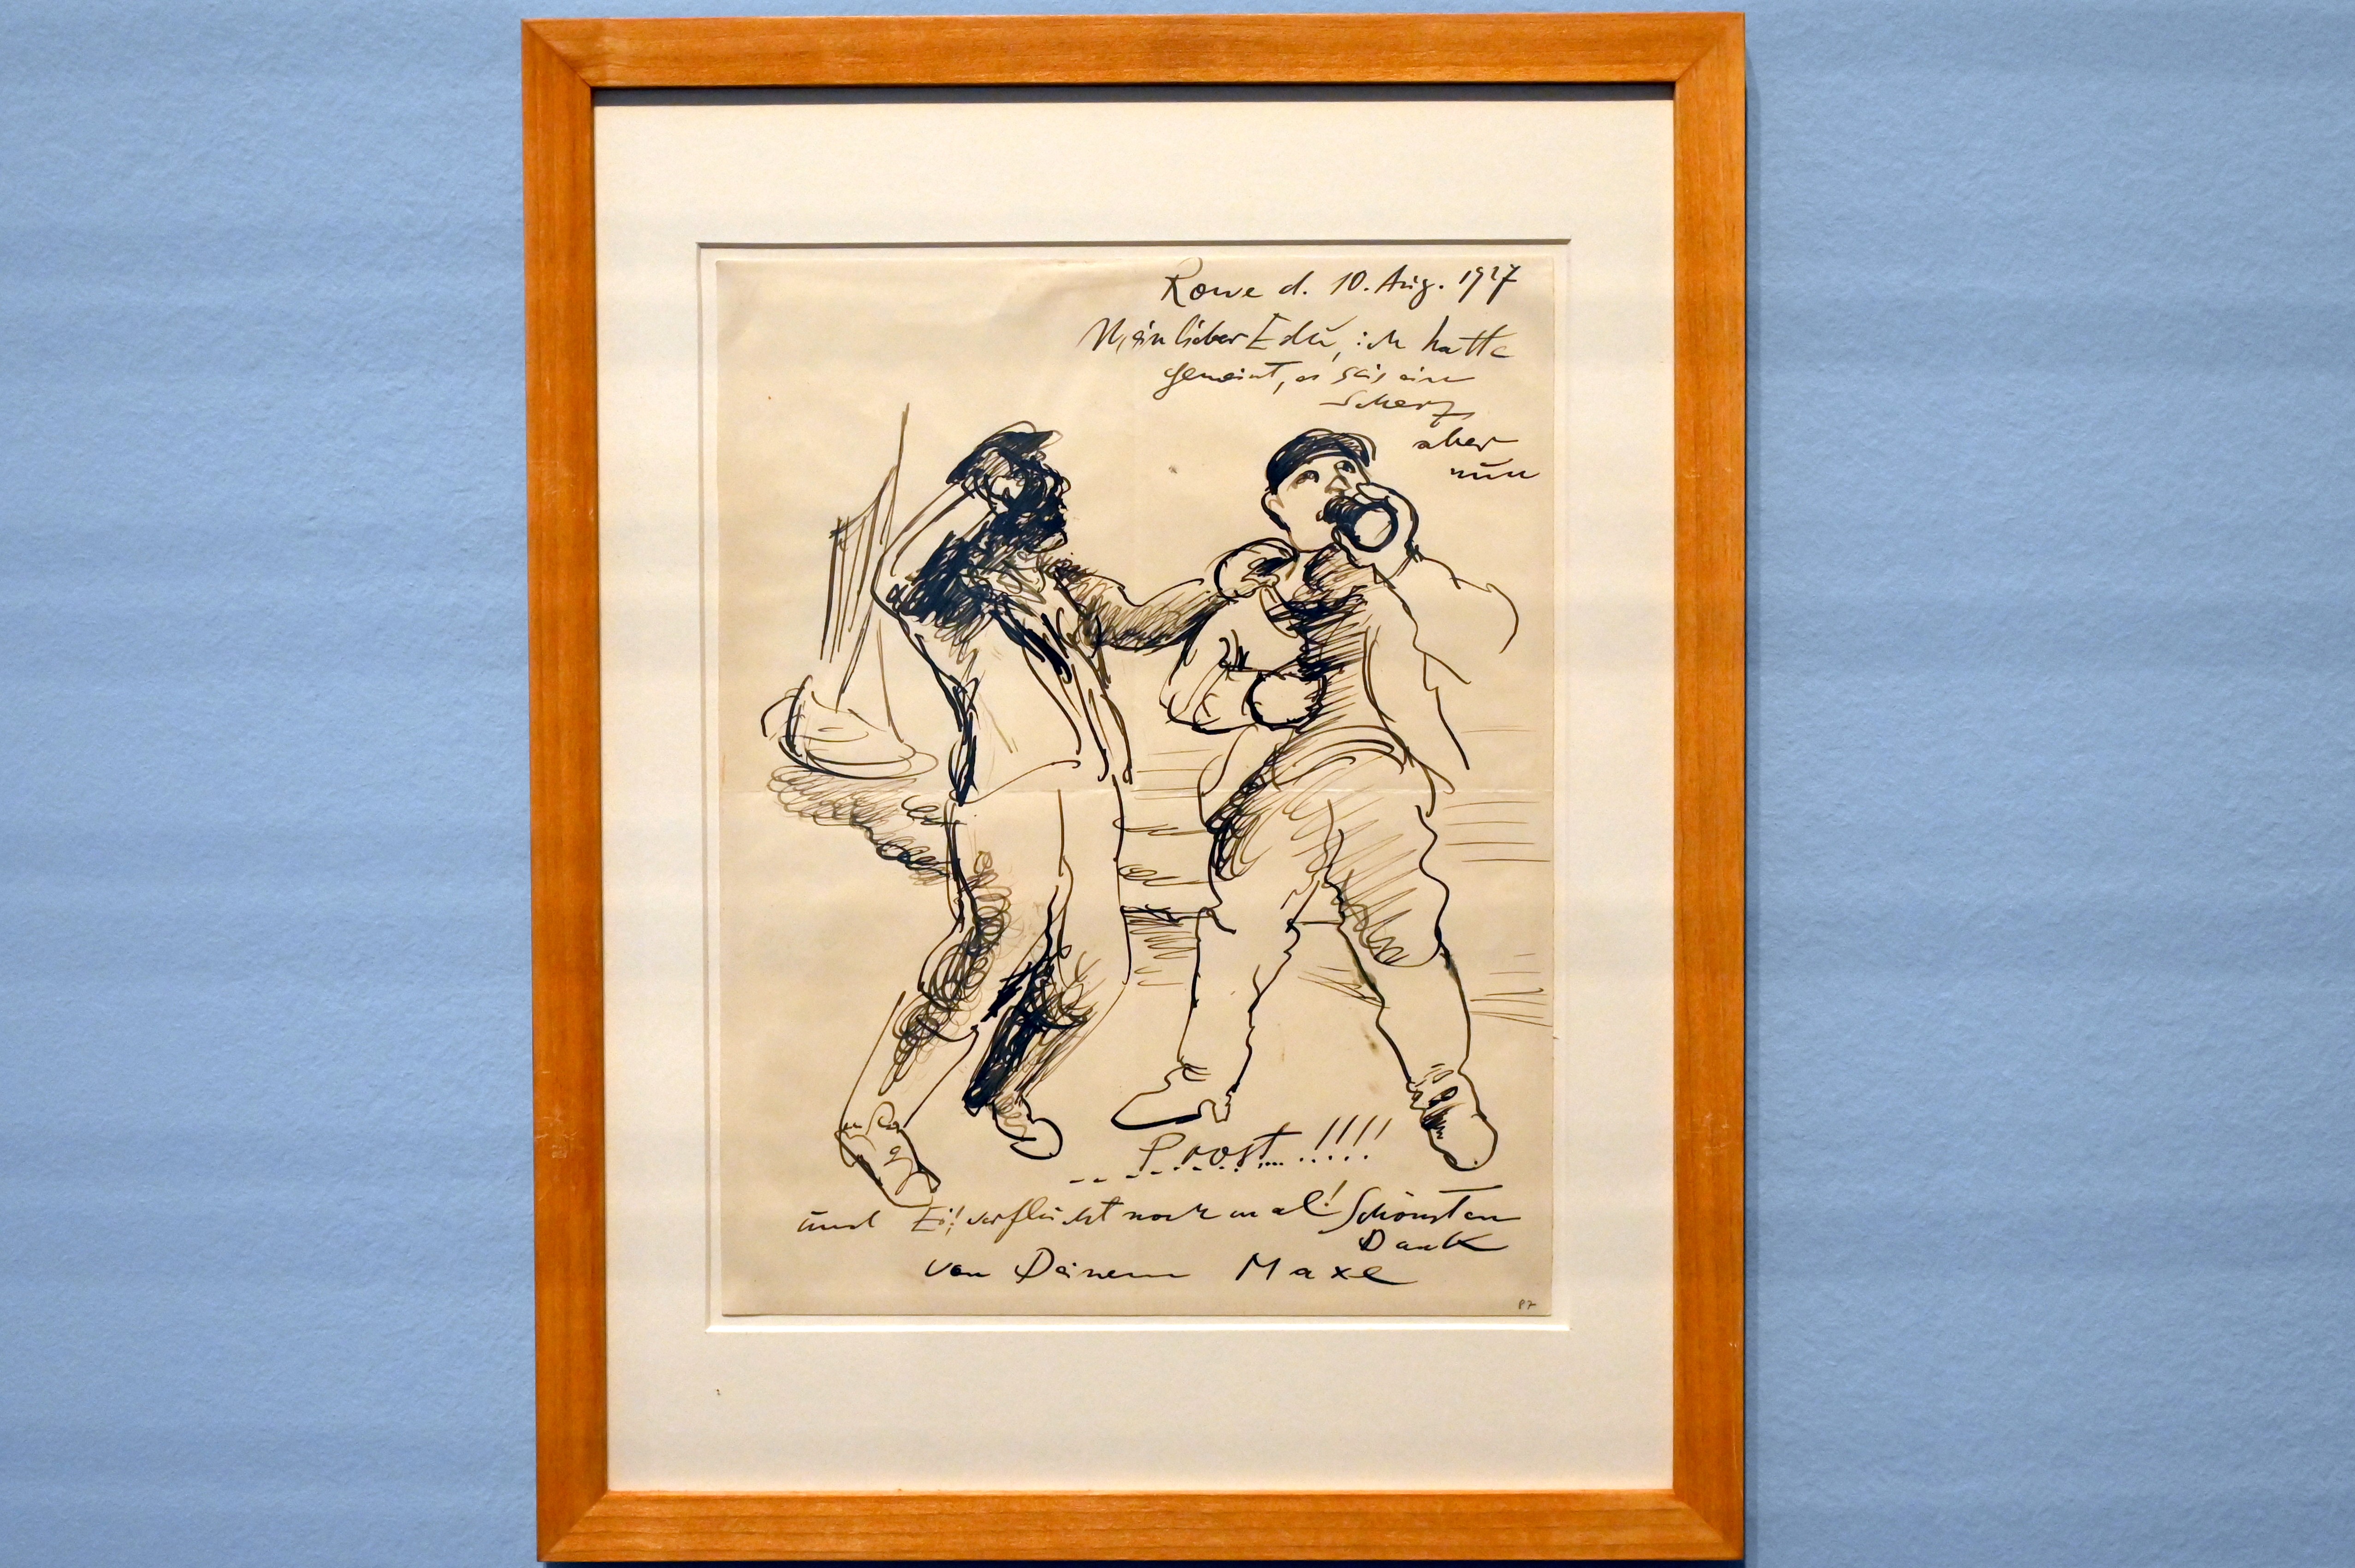 Rowe d. 10. Aug. 1927
Mein lieber Edu, ich hatte
gemeint, es sei ein
Scherz
aber
nun
Prost....!!!!
und Ei! verflucht noch mal! Schönsten
Dank
von Deinem Maxe
87